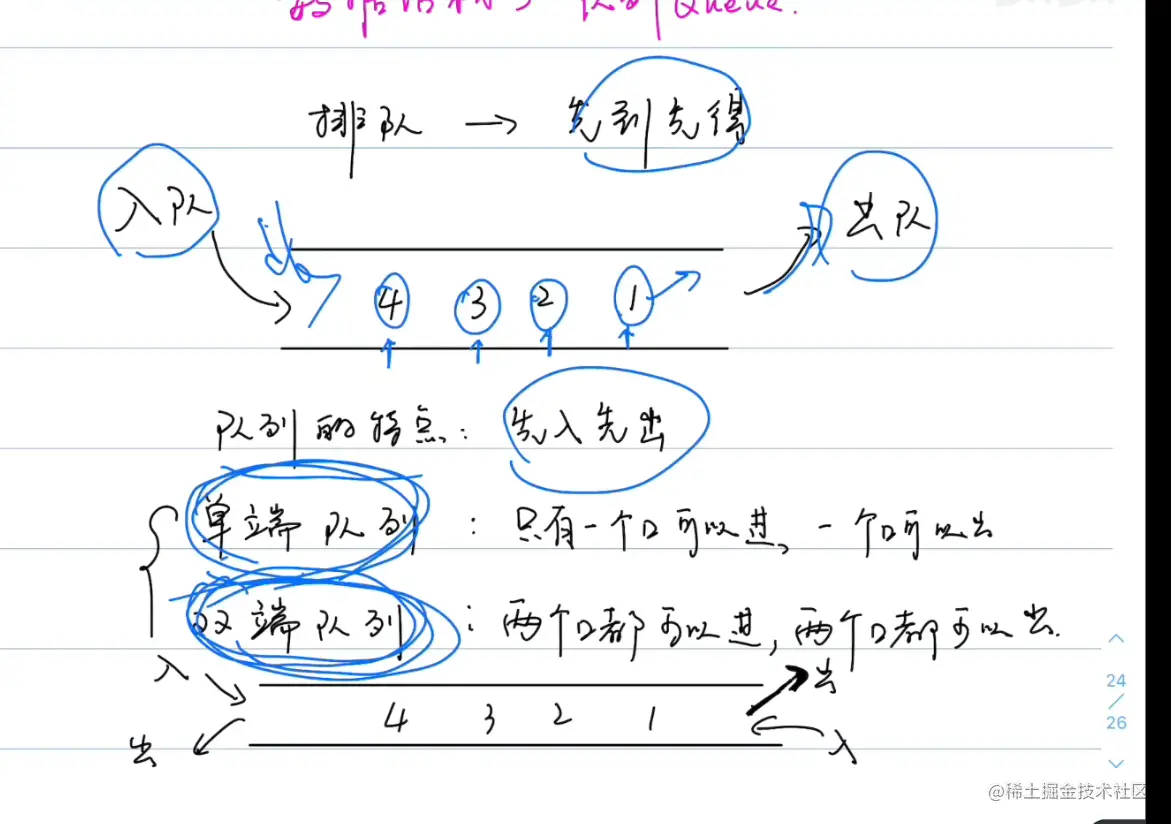 队列Queue.
排队 → 先到先得
入队 出队
4 3 2 1
队列的特点: 先入先出
单端队列 : 只有一个口可以进, 一个口可以出
双端队列 : 两个口都可以进, 两个口都可以出.
入 出
4 3 2 1
出 入
24
/
26
@稀土掘金技术社区